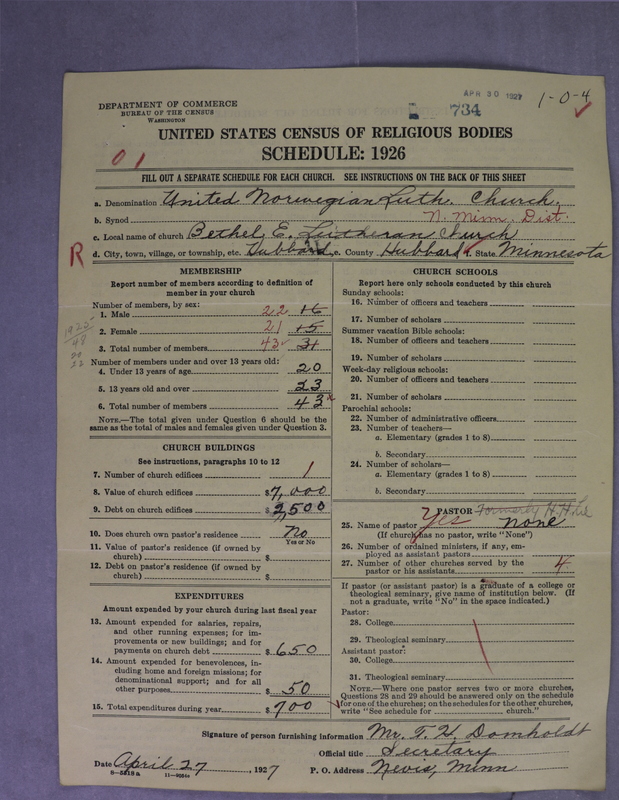 APR 30 1927
1-0-4
734
DEPARTMENT OF COMMERCE
BUREAU OF THE CENSUS
WASHINGTON
UNITED STATES CENSUS OF RELIGIOUS BODIES
SCHEDULE: 1926
01
FILL OUT A SEPARATE SCHEDULE FOR EACH CHURCH. SEE INSTRUCTIONS ON THE BACK OF THIS SHEET
a. Denomination United Norwegian Luth. Church.
b. Synod N. Minn. Dist.
c. Local name of church Bethel E. Lutheran Church
R
d. City, town, village, or township, etc. Hubbard, e. County Hubbard f. State Minnesota
MEMBERSHIP
Report number of members according to definition of
member in your church
Number of members, by sex:
1. Male 22 16
2. Female 21 15
3. Total number of members 43 31
1925
48
20
22
Number of members under and over 13 years old:
4. Under 13 years of age 20
5. 13 years old and over 23
6. Total number of members 43
NOTE.—The total given under Question 6 should be the
same as the total of males and females given under Question 3.
CHURCH BUILDINGS
See instructions, paragraphs 10 to 12
7. Number of church edifices 1
8. Value of church edifices $7,000
9. Debt on church edifices $2,500
10. Does church own pastor's residence No
Yes or No
11. Value of pastor's residence (if owned by
church) $
12. Debt on pastor's residence (if owned by
church) $
EXPENDITURES
Amount expended by your church during last fiscal year
13. Amount expended for salaries, repairs,
and other running expenses; for im-
provements or new buildings; and for
payments on church debt $650
14. Amount expended for benevolences, in-
cluding home and foreign missions; for
denominational support; and for all
other purposes $50
15. Total expenditures during year $700
CHURCH SCHOOLS
Report here only schools conducted by this church
Sunday schools:
16. Number of officers and teachers
17. Number of scholars
Summer vacation Bible schools:
18. Number of officers and teachers
19. Number of scholars
Week-day religious schools:
20. Number of officers and teachers
21. Number of scholars
Parochial schools:
22. Number of administrative officers
23. Number of teachers—
a. Elementary (grades 1 to 8)
b. Secondary
24. Number of scholars—
a. Elementary (grades 1 to 8)
b. Secondary
PASTOR Formerly H. H.
25. Name of pastor Yes none
(If church has no pastor, write "None")
26. Number of ordained ministers, if any, em-
ployed as assistant pastors
27. Number of other churches served by the
pastor or his assistants 4
If pastor (or assistant pastor) is a graduate of a college or
theological seminary, give name of institution below. (If
not a graduate, write "No" in the space indicated.)
Pastor:
28. College
29. Theological seminary
Assistant pastor:
30. College
31. Theological seminary
NOTE.—Where one pastor serves two or more churches,
Questions 28 and 29 should be answered only on the schedule
for one of the churches; on the schedules for the other churches,
write "See schedule for church."
Signature of person furnishing information Mr. T. H. Domholdt
Official title Secretary
Date April 27, 1927 P. O. Address Nevis, Minn
8-5518a 11-9064a